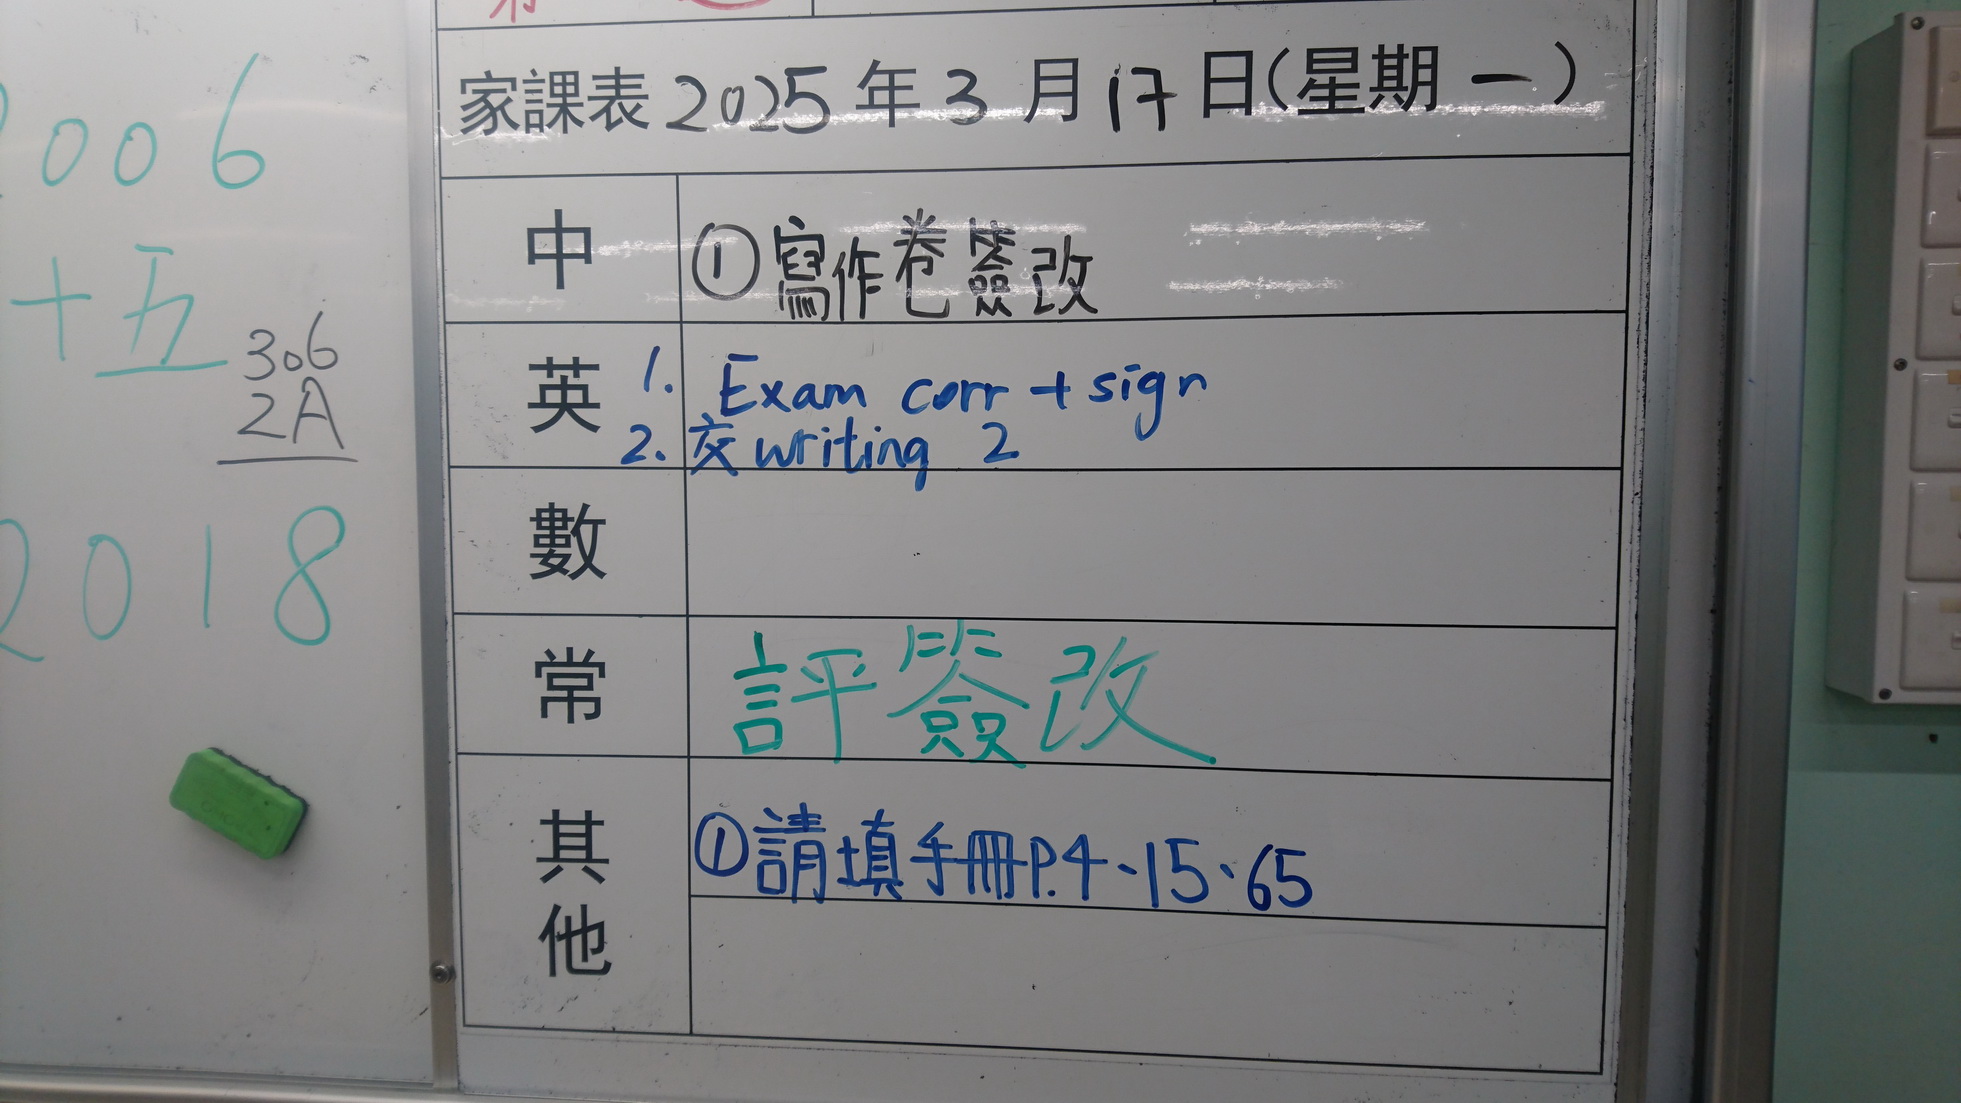 家課表 2025 年 3 月 17 日(星期 一 )
中 ①寫作卷簽改
英 1. Exam corr + sign
2. 交 writing 2
數
常 評簽改
其他 ①請填手冊P.4、15、65
2006
十五
306
2A
2018